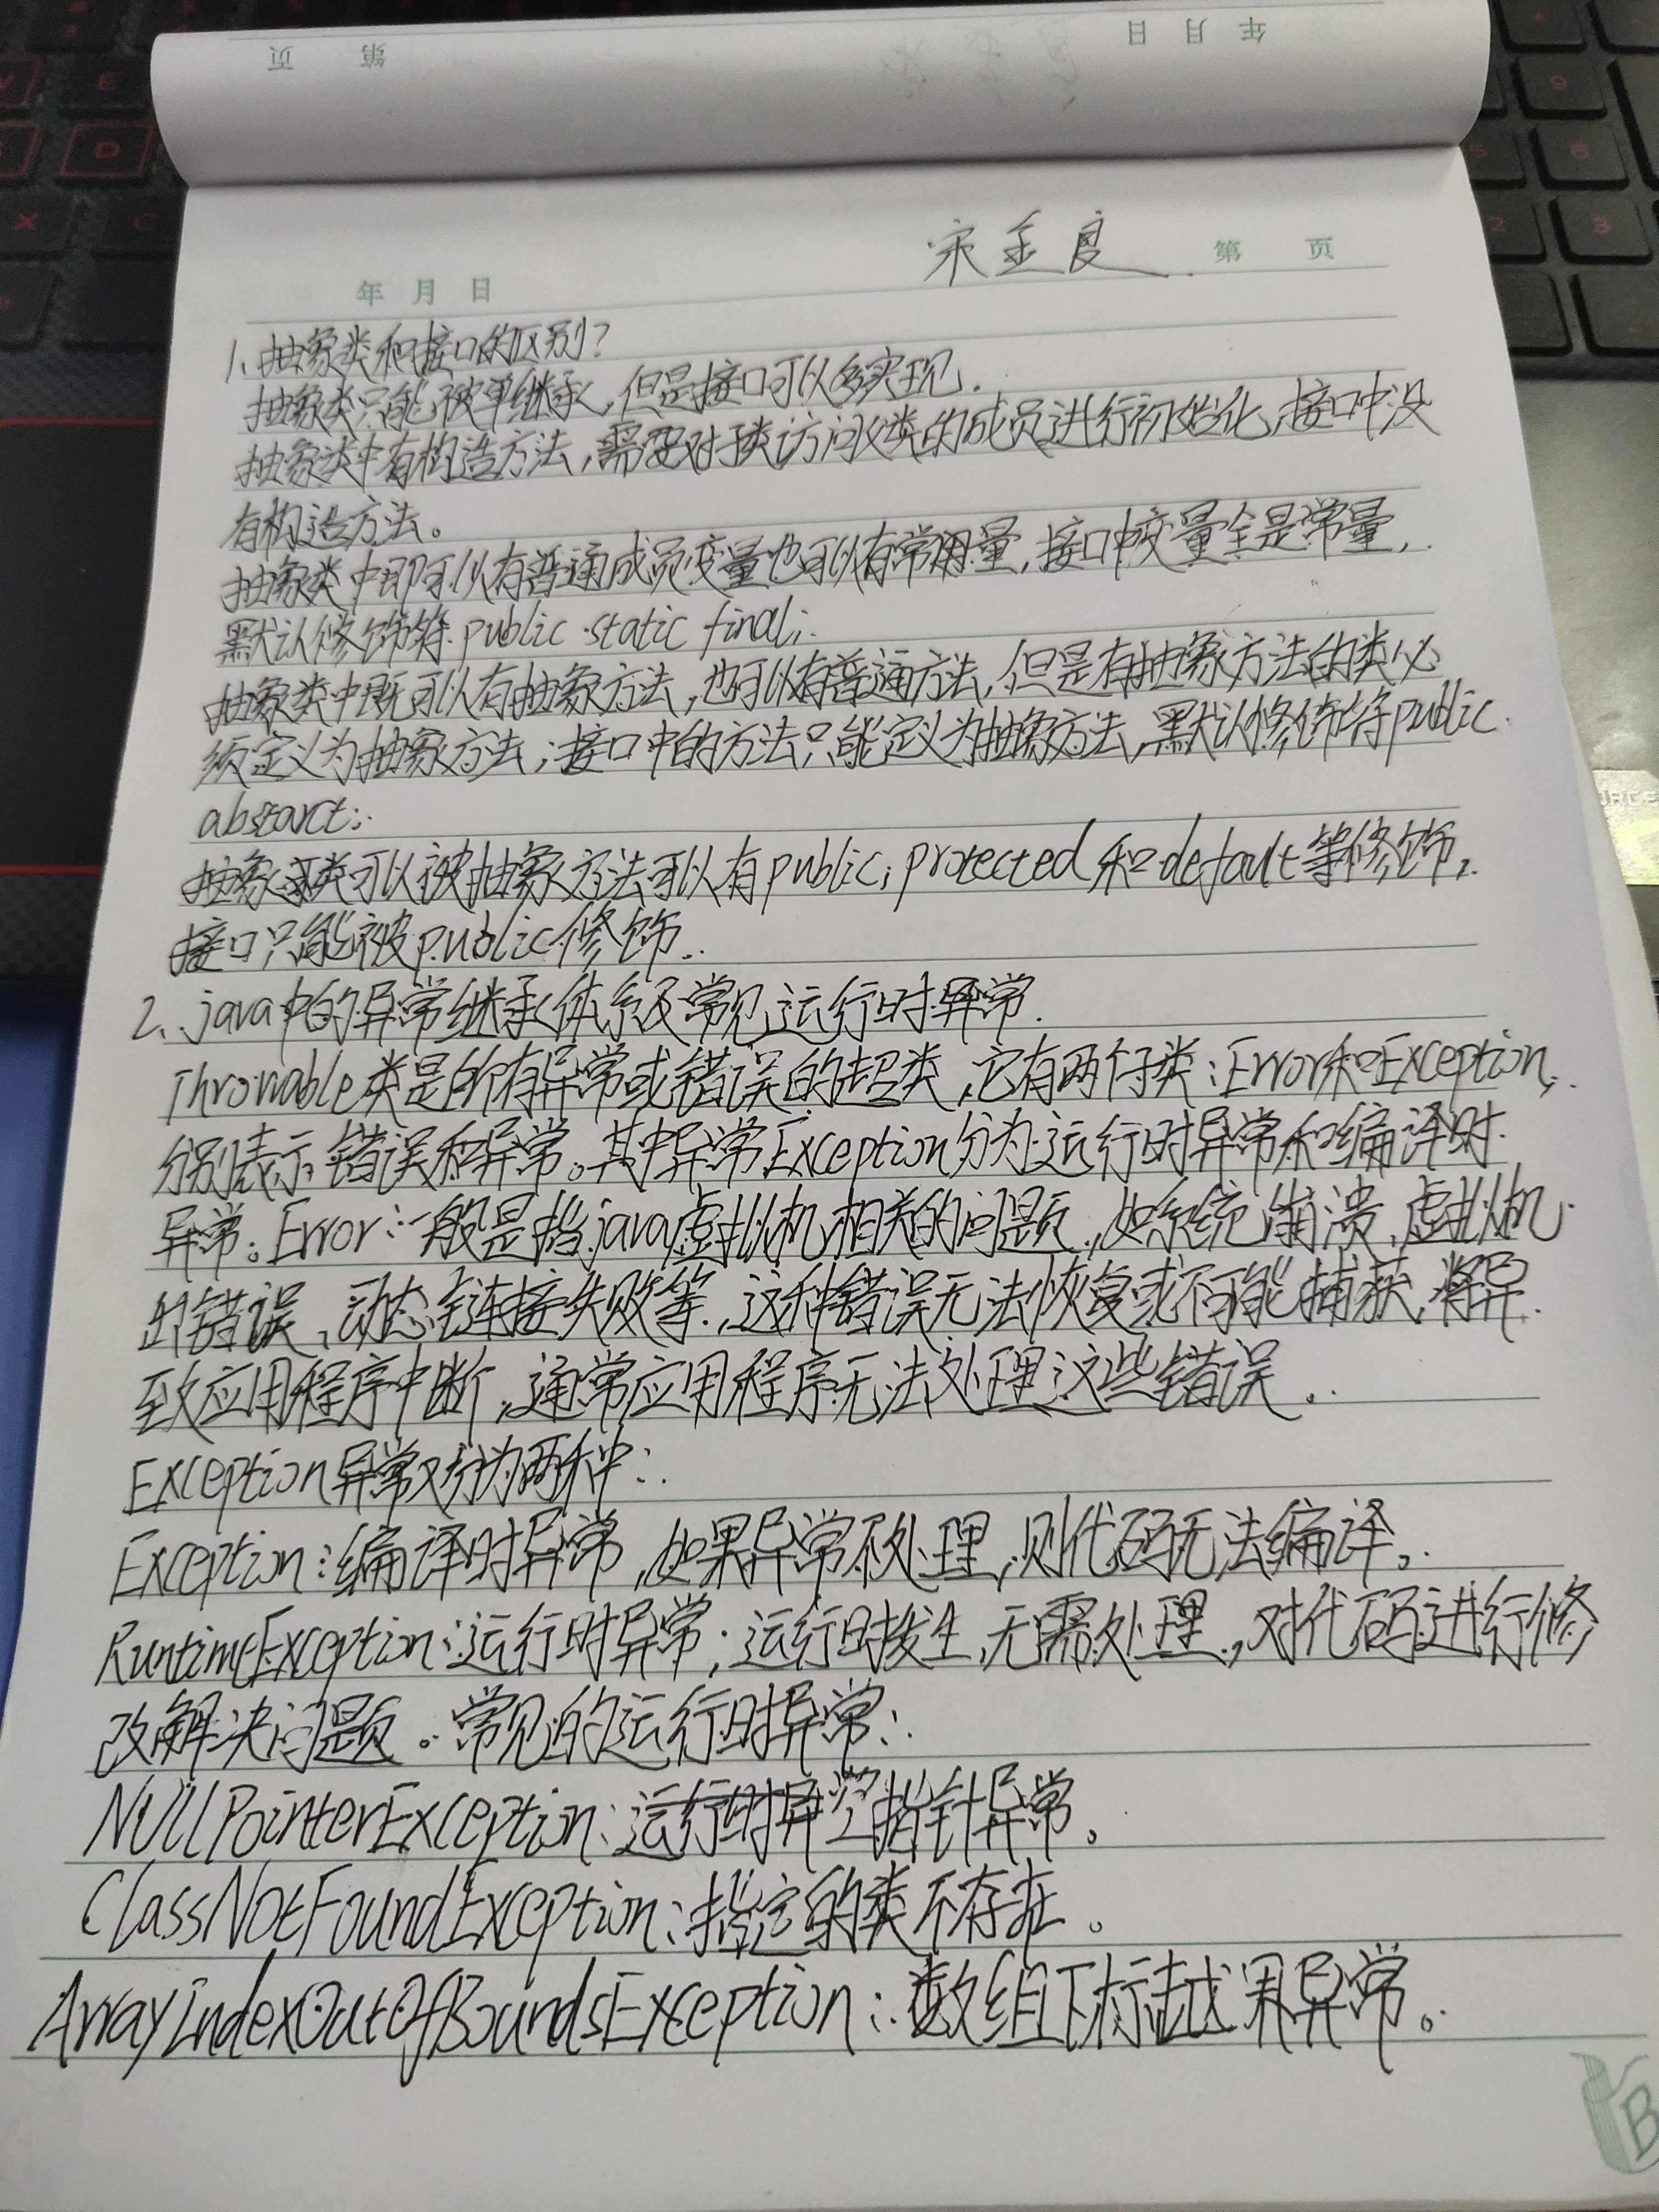 年 月 日
第 页
宋金良 第 页
年 月 日
1、抽象类和接口的区别？
抽象类只能被单继承，但是接口可以多实现．
抽象类中有构造方法，需要对子类访问父类的成员进行初始化，接口中没
有构造方法。
抽象类中即可以有普通成员变量也可以有常用量，接口中变量全是常量，
默认修饰符 public static final；
抽象类中既可以有抽象方法，也可以有普通方法，但是有抽象方法的类必
须定义为抽象方法；接口中的方法只能定义为抽象方法，默认修饰符public
abstarct；
抽象类可以被抽象方法可以有public，protected和default等修饰，
接口只能被public修饰．
2、java中的异常继承体系及常见运行时异常．
Throwable类是所有异常或错误的超类，它有两个子类：Error和Exception，
分别表示错误和异常。其中异常Exception分为运行时异常和编译时
异常。Error：一般是指java虚拟机相关的问题，如系统崩溃，虚拟机
出错误、动态链接失败等，这种错误无法恢复或不可能捕获，将导
致应用程序中断，通常应用程序无法处理这些错误。
Exception异常又分为两种：
Exception：编译时异常，如果异常不处理，则代码无法编译。
RuntimeException：运行时异常；运行时发生，无需处理，对代码进行修
改解决问题。常见的运行时异常：
NullPointerException：运行时异空指针异常。
ClassNotFoundException：指定的类不存在。
ArrayIndexOutOfBoundsException：数组下标越界异常。
B